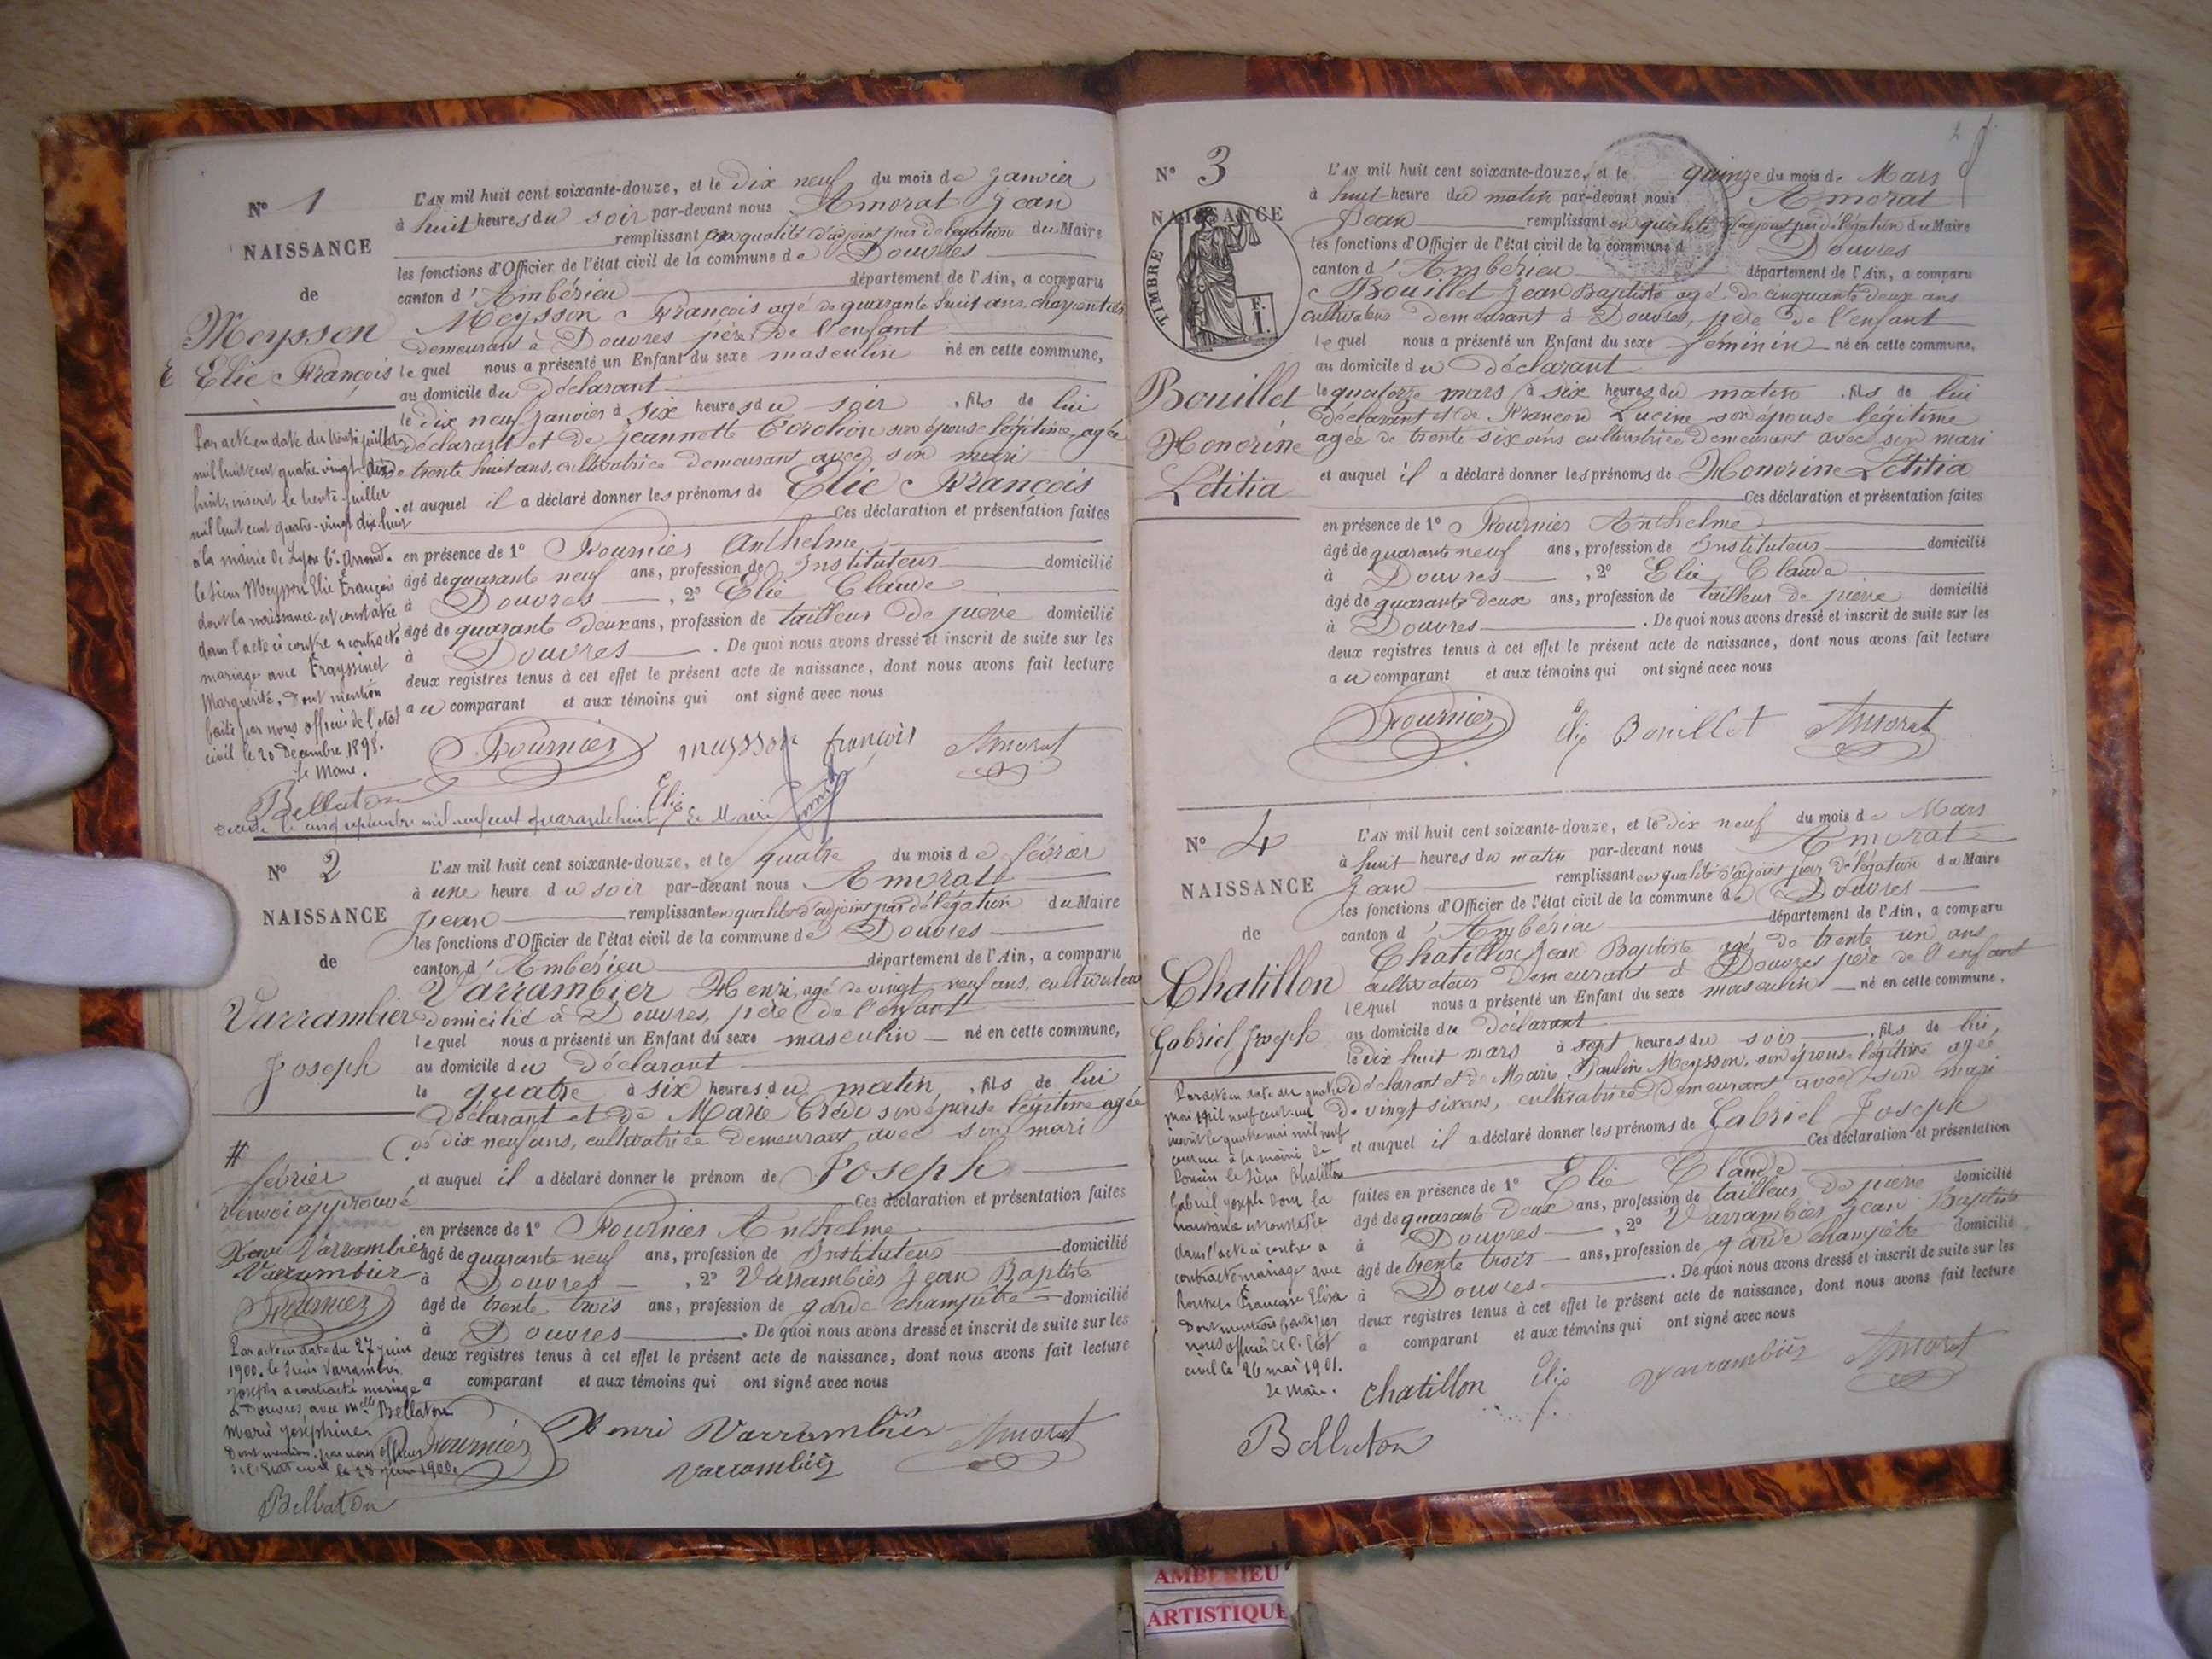 N° 1
NAISSANCE
de
Meysson
Elie François
L'AN mil huit cent soixante-douze, et le dix neuf du mois de Janvier
à huit heures du soir par-devant nous Amorat Jean
remplissant en qualité d'adjoint par délégation du Maire
les fonctions d'Officier de l'état civil de la commune de Douvres
canton d'Ambérieu département de l'Ain, a comparu
Meysson François agé de quarante huit ans, charpentier
demeurant à Douvres père de l'enfant
lequel nous a présenté un Enfant du sexe masculin né en cette commune,
au domicile du déclarant
le dix neuf janvier à six heures du soir, fils de lui
déclarant et de Jeannette son épouse légitime, agée
de trente huit ans, cultivatrice demeurant avec son mari
et auquel il a déclaré donner les prénoms de Elie François
Ces déclaration et présentation faites
en présence de 1° Fournier Anthelme
âgé de quarante neuf ans, profession de Instituteur domicilié
à Douvres, 2° Elie Claude
âgé de quarante deux ans, profession de tailleur de pierre domicilié
à Douvres. De quoi nous avons dressé et inscrit de suite sur les
deux registres tenus à cet effet le présent acte de naissance, dont nous avons fait lecture
au comparant et aux témoins qui ont signé avec nous
Fournier meysson françois Amorat
Elie
Par acte en date du trente juillet
mil huit cent quatre vingt dix
huit, inscrit le trente juillet
mil huit cent quatre-vingt dix huit
à la mairie de Lyon 6e Arrond.
le sieur Meysson Elie François
dont la naissance est constatée
dans l'acte ci contre a contracté
mariage avec Frayssinet
Marguerite, Dont mention
faite par nous officier de l'état
civil le 20 Décembre 1898.
Le Maire.
Bellaton
Décédé le cinq septembre mil neuf cent quarante huit Le Maire
N° 2
NAISSANCE
de
Varrambier
Joseph
L'AN mil huit cent soixante-douze, et le quatre du mois de février
à une heure du soir par-devant nous Amorat
Jean remplissant en qualité d'adjoint par délégation du Maire
les fonctions d'Officier de l'état civil de la commune de Douvres
canton d'Ambérieu département de l'Ain, a comparu
Varrambier Henri, agé de vingt neuf ans, cultivateur
domicilié à Douvres, père de l'enfant
lequel nous a présenté un Enfant du sexe masculin né en cette commune,
au domicile du déclarant
le quatre à six heures du matin, fils de lui
déclarant et de Marie son épouse légitime agée
de dix neuf ans, cultivatrice demeurant avec son mari
et auquel il a déclaré donner le prénom de Joseph
Ces déclaration et présentation faites
en présence de 1° Fournier Anthelme
âgé de quarante neuf ans, profession de Instituteur domicilié
à Douvres, 2° Varrambier Jean Baptiste
âgé de trente trois ans, profession de garde champêtre domicilié
à Douvres. De quoi nous avons dressé et inscrit de suite sur les
deux registres tenus à cet effet le présent acte de naissance, dont nous avons fait lecture
a comparant et aux témoins qui ont signé avec nous
Fournier Henri Varrambier Amorat
Varrambier
#
février
renvoi approuvé
Henri Varrambier
Varrambier
Fournier
Par acte en date du 27 juin
1900, le sieur Varrambier
Joseph a contracté mariage
à Douvres avec Melle Bellaton
Marie Joséphine.
Dont mention par nous officier
de l'Etat civil le 28 juin 1900.
Bellaton
2
N° 3
NAISSANCE
TIMBRE
F.
1.
Bouillet
Honorine
Letitia
L'AN mil huit cent soixante-douze, et le quinze du mois de Mars
à huit heure du matin par-devant nous Amorat
Jean remplissant en qualité d'adjoint par délégation du Maire
les fonctions d'Officier de l'état civil de la commune d Douvres
canton d'Ambérieu département de l'Ain, a comparu
Bouillet Jean Baptiste agé de cinquante deux ans
cultivateur demeurant à Douvres, père de l'enfant
lequel nous a présenté un Enfant du sexe féminin né en cette commune,
au domicile du déclarant
le quatorze mars à six heures du matin, fils de lui
déclarant et de Françon Lucine son épouse légitime
agée de trente six ans cultivatrice demeurant avec son mari
et auquel il a déclaré donner les prénoms de Honorine Létitia
Ces déclaration et présentation faites
en présence de 1° Fournier Anthelme
âgé de quarante neuf ans, profession de Instituteur domicilié
à Douvres, 2° Elie Claude
âgé de quarante deux ans, profession de tailleur de pierre domicilié
à Douvres. De quoi nous avons dressé et inscrit de suite sur les
deux registres tenus à cet effet le présent acte de naissance, dont nous avons fait lecture
au comparant et aux témoins qui ont signé avec nous
Fournier Elie Bouillet Amorat
N° 4
NAISSANCE
de
Chatillon
Gabriel Joseph
L'AN mil huit cent soixante-douze, et le dix neuf du mois de Mars
à huit heures du matin par-devant nous Amorat
Jean remplissant en qualité d'adjoint par délégation du Maire
les fonctions d'Officier de l'état civil de la commune de Douvres
canton d'Ambérieu département de l'Ain, a comparu
Chatillon Jean Baptiste agé de trente un ans
cultivateur demeurant à Douvres père de l'enfant
lequel nous a présenté un Enfant du sexe masculin né en cette commune,
au domicile du déclarant
le dix huit mars à sept heures du soir, fils de lui,
déclarant et de Marie Pauline Meysson, son épouse légitime agée
de vingt six ans, cultivatrice demeurant avec son mari
et auquel il a déclaré donner les prénoms de Gabriel Joseph
Ces déclaration et présentation
faites en présence de 1° Elie Claude
âgé de quarante deux ans, profession de tailleur de pierre domicilié
à Douvres, 2° Varrambier Jean Baptiste
âgé de trente trois ans, profession de garde champêtre domicilié
à Douvres. De quoi nous avons dressé et inscrit de suite sur les
deux registres tenus à cet effet le présent acte de naissance, dont nous avons fait lecture
a comparant et aux témoins qui ont signé avec nous
chatillon Elie Varrambier Amorat
Par acte en date du quatre
mai mil neuf cent un
inscrit le quatre mai mil neuf
cent un à la mairie de
le sieur Chatillon
Gabriel Joseph dont la
naissance est constatée
dans l'acte ci contre a
contracté mariage avec
Françoise Elisa
Dont mention faite par
nous officier de l'Etat
civil le 26 mai 1901.
Le Maire.
Bellaton
AMBERIEU
ARTISTIQUE